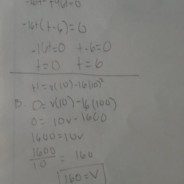 -16t(t-6)=0
-16t=0 t-6=0
t=0 t=6
0=v(10)-16(10)²
0=v(10)-16(100)
0=10v-1600
1600=10v
1600/10 = 160
160=v